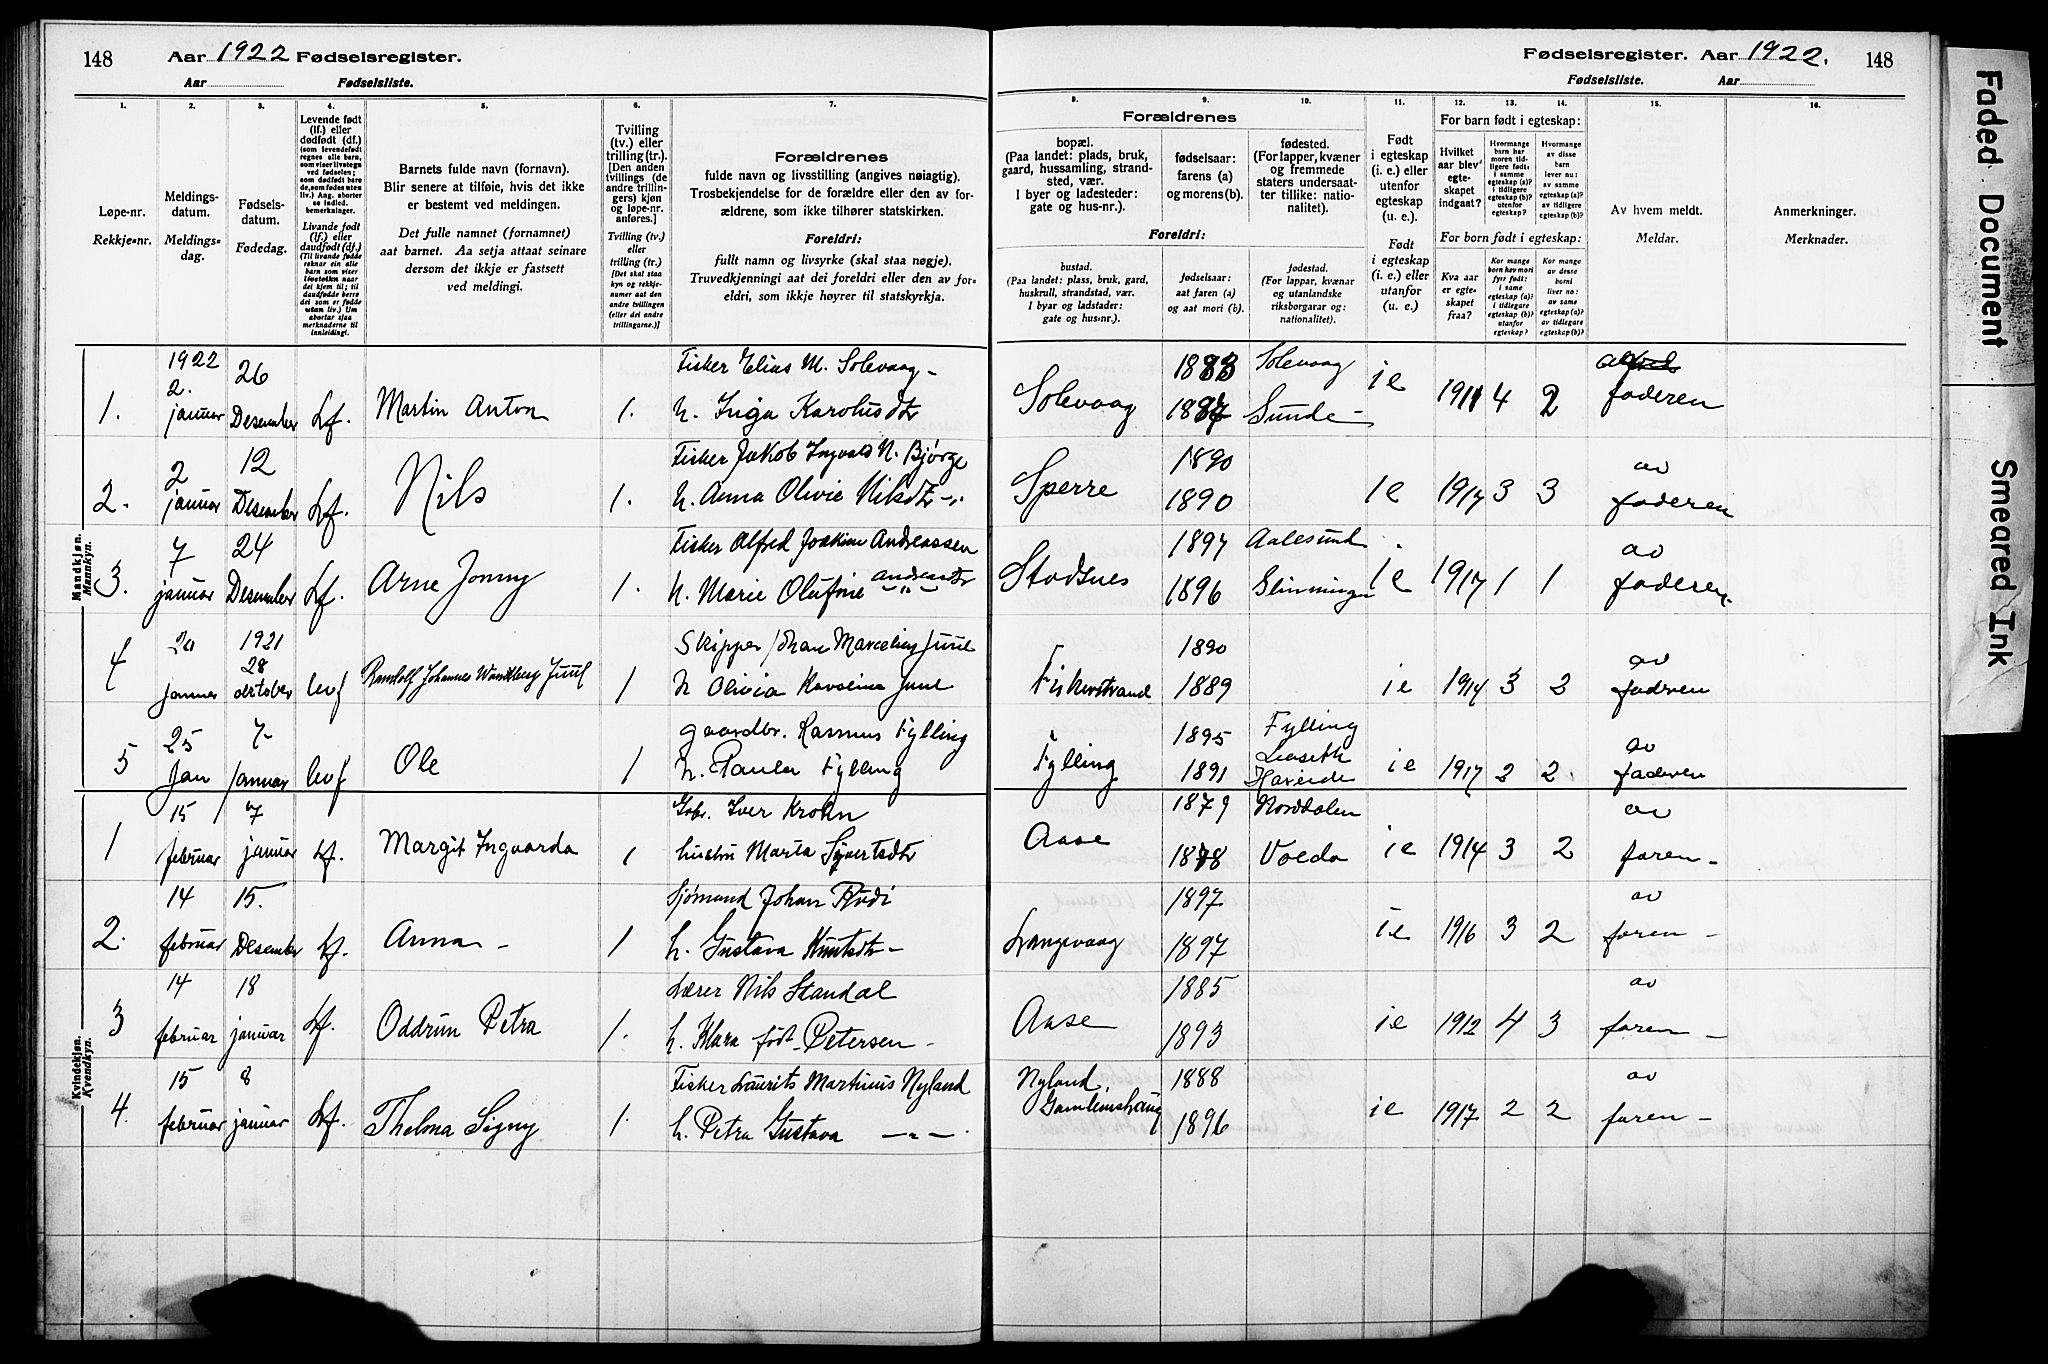 148 Aar 1922 Fødselsregister.
Aar Fødselsliste.
Fødselsregister. Aar 1922. 148
Fødselsliste. Aar
1. 2. 3. 4. 5. 6. 7.
Løpe-nr.
Rekkje-nr.
Meldings-
datum.
Meldings-
dag.
Fødsels-
datum.
Fødedag.
Levende født
(lf.) eller
dødfødt (df.)
(som levendefødt
regnes alle barn,
som viser livstegn
ved fødselen;
som dødfødt bare
de, som føden uten
liv.) Ang. aborter
se indled.
bemerkninger.
Livande født
(lf.) eller
daudfødt (df.)
(Til livande fødde
reknar ein alle
barn som viser
livsteikn naar
dei kjem til; til
daudfødde berre
dei som er fødde
utan liv.) Um
abortar sjaa
merknaderne til
innleidingi.
Barnets fulde navn (fornavn).
Blir senere at tilføie, hvis det ikke
er bestemt ved meldingen.
Det fulle namnet (fornamnet)
aat barnet. Aa setja attaat seinare
dersom det ikkje er fastsett
ved meldingi.
Tvilling
(tv.) eller
trilling (tr.).
[Den anden
tvillings (de
andre trillin-
gers) kjøn
og løpe-nr.
anføres.]
Tvilling (tv.)
eller
trilling (tr.)
[Det skal staa
kyn og rekkje-
numer aat den
andre tvillingen
(eller dei andre
trillingarne.)]
Forældrenes
fulde navn og livsstilling (angives nøiagtig).
Trosbekjendelse for de forældre eller den av for-
ældrene, som ikke tilhører statskirken.
Foreldri:
fullt namn og livsyrke (skal staa nøgje).
Truvedkjenningi aat dei foreldri eller den av for-
eldri, som ikkje høyrer til statskyrkja.
8. 9. 10. 11. 12. 13. 14. 15. 16.
Forældrenes
bopæl.
(Paa landet: plads, bruk,
gaard, hussamling, strand-
sted, vær.
I byer og ladesteder:
gate og hus-nr.).
fødselsaar:
farens (a)
og morens (b).
fødested.
(For lapper, kvæner
og fremmede
staters undersaat-
ter tillike: natio-
nalitet).
Foreldri:
bustad.
(Paa landet: plass, bruk, gard,
huskrull, strandstad, vær.
I byar og ladstader:
gate og hus-nr.).
fødselsaar:
aat faren (a)
og aat mori (b).
fødestad.
(For lappar, kvænar
og utanlandske
riksborgarar og:
nationalitet).
Født
i egteskap
(i. e.) eller
utenfor
egteskap
(u. e.).
Født
i egteskap
(i. e.) eller
utanfor
egteskap
(u. e.)
For barn født i egteskap:
Hvilket
aar blev
egte-
skapet
indgaat?
Hvormange
barn har
moren tid-
ligere født:
i samme
egteskap (a)?
i tidligere
egteskap (b)?
utenfor
egteskap?
Hvormange
av disse
barn
lever nu:
av samme
egteskap (a)?
av tidligere
egteskap (b)?
For born født i egteskap:
Kva aar
er egte-
skapet
fraa?
Kor mange
born hev mori
fyrr født:
i same
egteskap (a)?
i tidlegare
egteskap (b)?
utanfor
egteskap?
Kor mange
av desse
borni
liver no:
av same
egteskap (a)?
av tidlegare
egteskap (b)?
Av hvem meldt.
Meldar.
Anmerkninger.
Merknader.
Mandkjøn.
Mannkyn.
1922 26 Fisker Elias M. Solevaag - 1883 Solevaag
1. 2. januar Desember Lf. Martin Anton 1. h. Inga Karolusdtr Solevaag 1887 Sunde - ie 1911 4 2 faderen
2 12 Fisker Jakob Ingvald N. Bjørge 1890 av
2. januar Desember Lf. Nils 1. h. Anna Olivie Nilsdtr -"- Sperre 1890 ie 1917 3 3 faderen
7 24 Fisker Alfred Joakim Andreassen 1897 Aalesund av
3. januar Desember Lf. Arne Jonny 1. h. Marie Olufine Andreasdtr -"- Stodsnes 1896 Slinningen ie 1917 1 1 faderen.
20 1921 28 Skipper Johan Marcelius Juul 1890 av
4 Januar oktober levf Randolf Johannes Wandberg Juul 1 h Olivia Karoline Juul Fiskerstrand 1889 ie 1914 3 3 faderen
25 7- gaardbr. Rasmus Fylling 1895 Fylling av
5 Jan januar levf Ole 1 h. Paula Fylling Fylling 1891 Liaseth Hareide ie 1917 2 2. faderen
Kvindekjøn.
Kvendkyn.
15 7 Gbr. Iver Krohn 1879 Norddalen av
1 februar januar Lf. Margit Ingvarda 1 hustru Marta Syvertsdtr Aase 1878 Volda ie 1914 3 2 faren -
14 15. Sjømand Johan Rudi 1897 av
2. februar Desember Lf. Anna - 1 h. Gustava Knutsdtr - Langevaag 1897 ie 1916 3 2 faren -
14 18 Lærer Nils Standal 1885 av
3 februar januar Lf. Oddrun Petra 1. h. Klara født Petersen - Aase 1893 ie 1912 4 3 faren -
15 8 Fisker Laurits Martinus Nyland Nyland, 1888 av
4. februar januar Lf. Thelma Signy 1. h. Petra Gustava -"- Gamlemshaug 1896 ie 1917 2 2 faren -
Faded Document
Smeared Ink